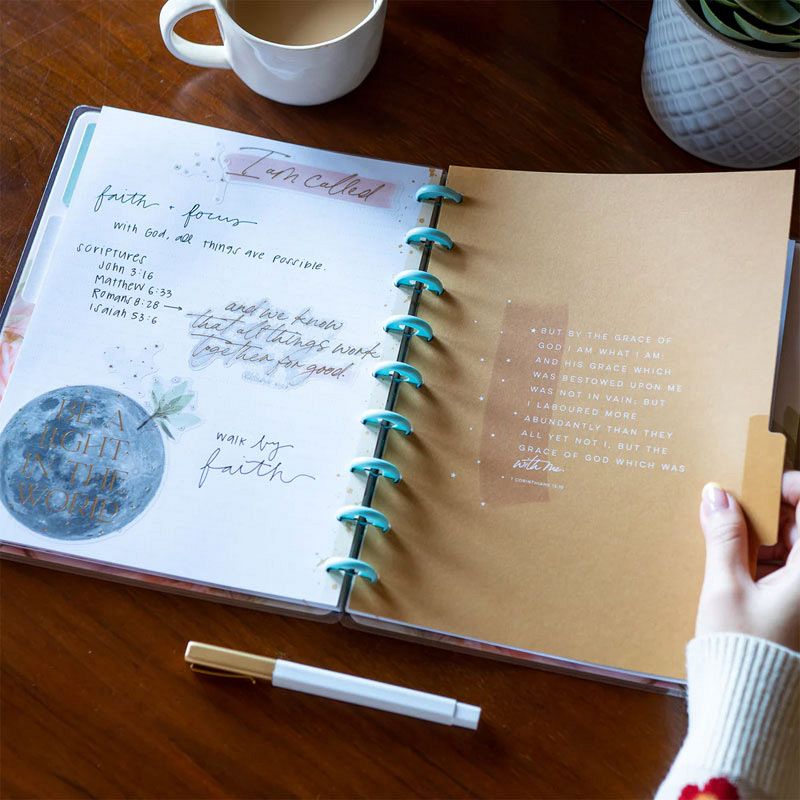 I am called
faith + focus
with God, all things are possible.
scriptures
John 3:16
Matthew 6:33
Romans 8:28 →
Isaiah 53:6
and we know
that all things work
together for good.
BE A
LIGHT
IN THE
WORLD
walk by
faith
BUT BY THE GRACE OF
GOD I AM WHAT I AM:
AND HIS GRACE WHICH
WAS BESTOWED UPON ME
WAS NOT IN VAIN; BUT
I LABOURED MORE
ABUNDANTLY THAN THEY
ALL YET NOT I, BUT THE
GRACE OF GOD WHICH WAS
with me.
1 CORINTHIANS 15:10